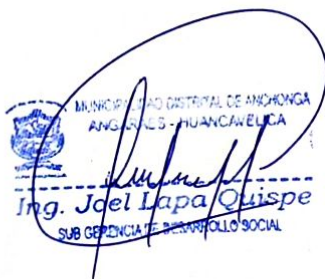 MUNICIPALIDAD DISTRITAL DE ANCHONGA
ANGARAES - HUANCAVELICA
Ing. Joel Lapa Quispe
SUB GERENCIA DE DESARROLLO SOCIAL